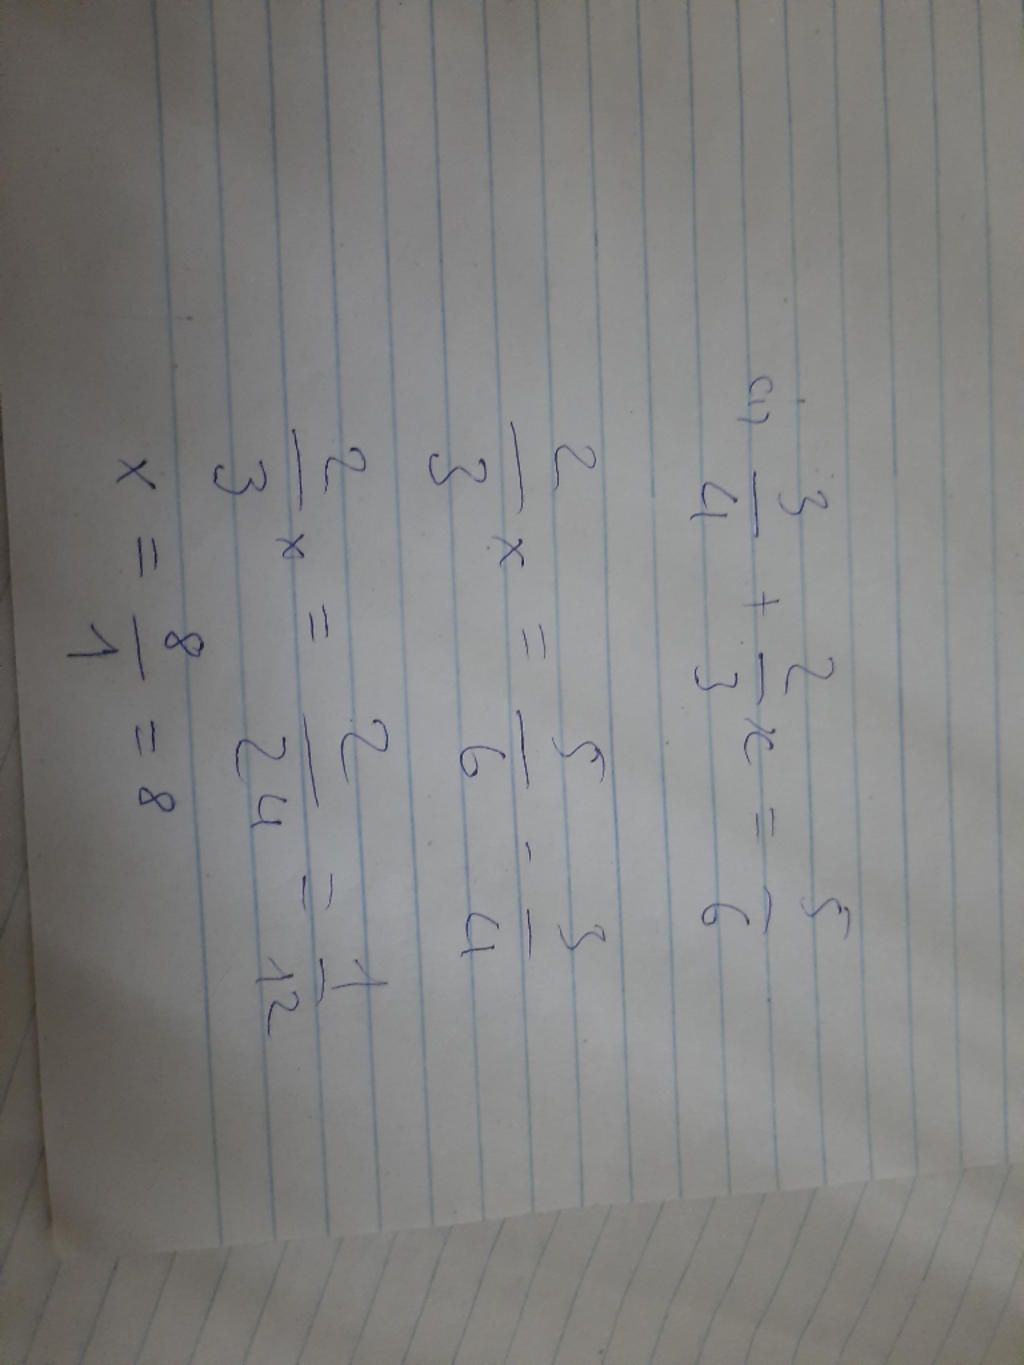 a) 3/4 + 2/3 x = 5/6
2/3 x = 5/6 - 3/4
2/3 x = 2/24 = 1/12
x = 8/1 = 8